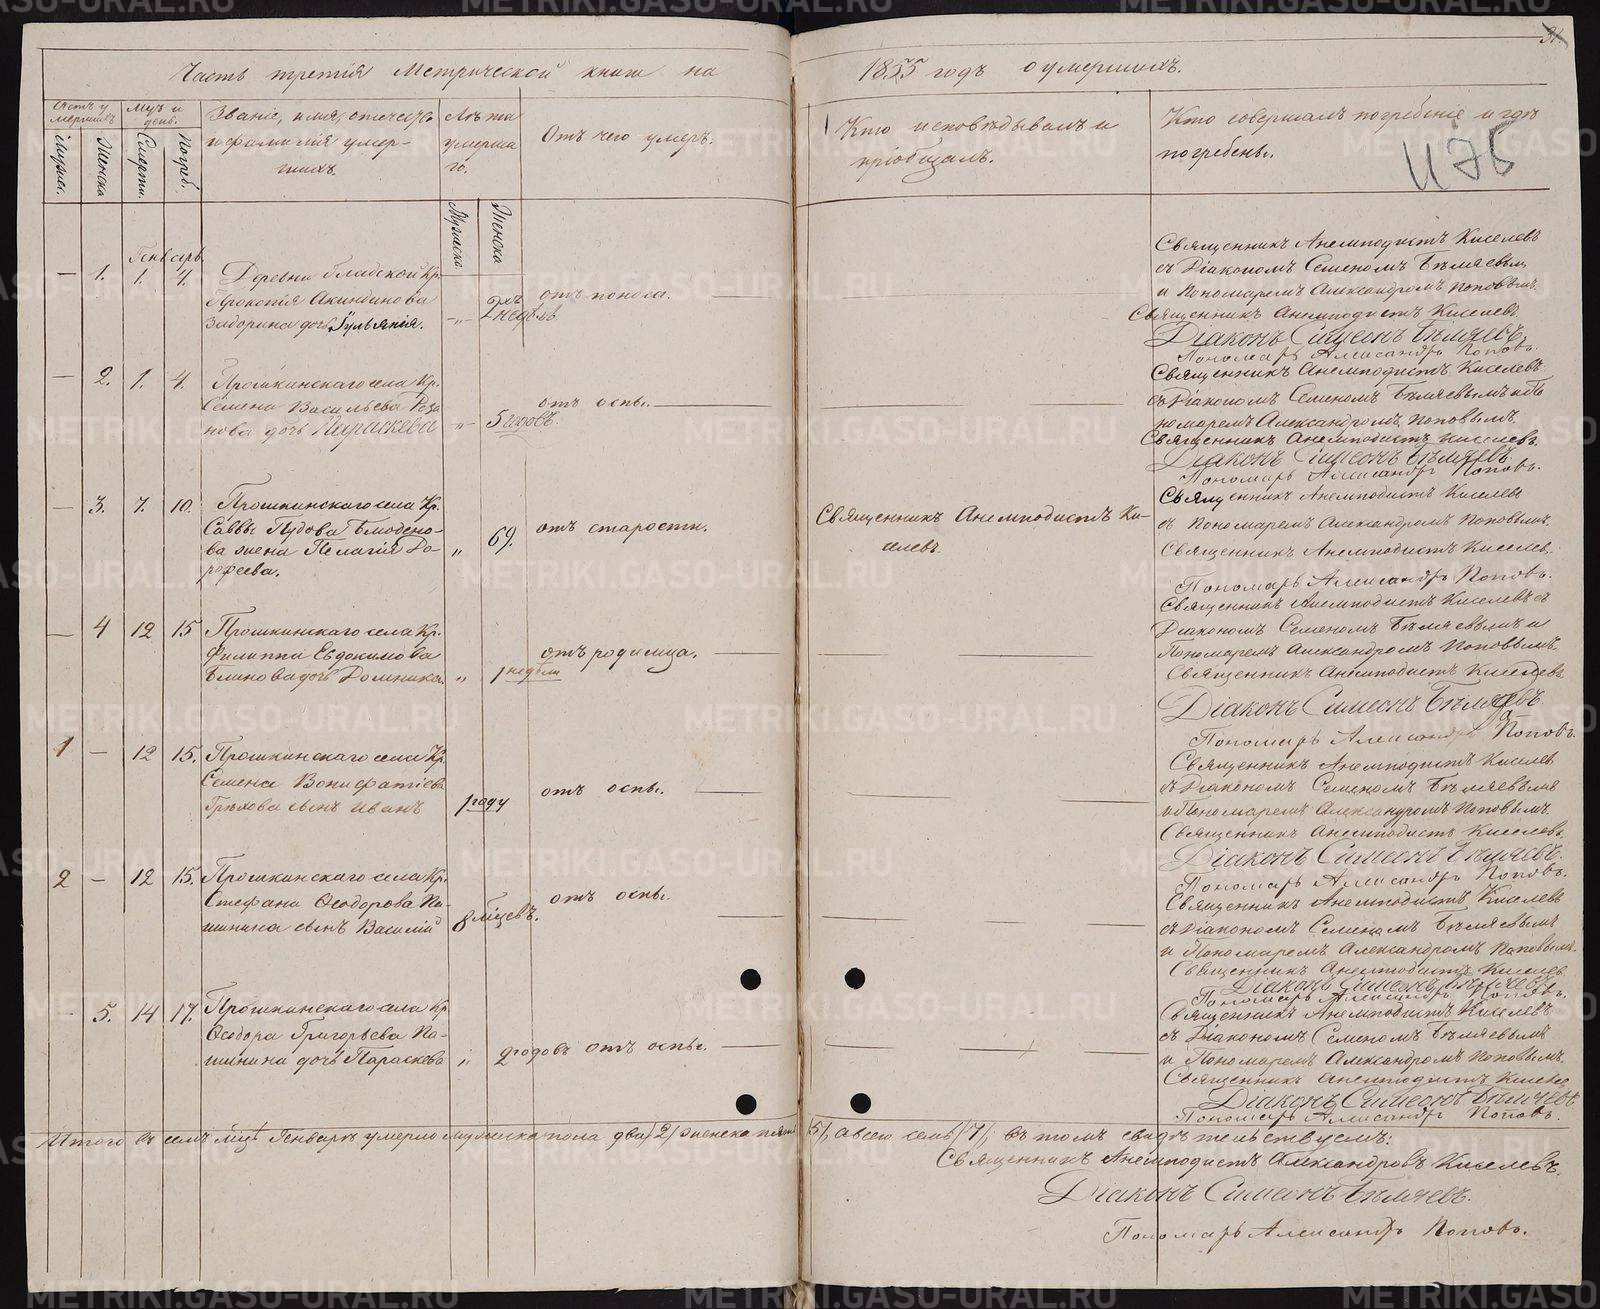 Часть третія Метрической книги на 1855 годъ о умершихъ.
Счетъ умершихъ
Муж.
Женска
Мць и день.
Смерти.
Погреб.
Званіе, имя, отечество
и фамилія умер-
шихъ.
Лѣта
умерша
го.
Мужеска
Женска
Отъ чего умеръ.
Кто исповѣдывалъ и
пріобщалъ.
Кто совершалъ погребеніе и гдѣ
погребены.
Генварь
1. 1. 4.
Деревни Гладской Кр.
Прокопія Акиндинова
Задорина дочь Іульянія.
2хъ
недѣль
отъ поноса.
Священникъ Анемподистъ Киселевъ
съ Діакономъ Семеномъ Бѣляевымъ
и Пономаремъ Александромъ Поповымъ.
Священникъ Анемподистъ Киселевъ.
Діаконъ Симеонъ Бѣляевъ.
Пономарь Александръ Поповъ.
2. 1. 4.
Прошкинскаго села Кр.
Семена Васильева Роза
нова дочь Параскева
5 годовъ.
отъ оспы.
Священникъ Анемподистъ Киселевъ
съ Діакономъ Семеномъ Бѣляевымъ и По
номаремъ Александромъ Поповымъ.
Священникъ Анемподистъ Киселевъ.
Діаконъ Симеонъ Бѣляевъ.
Пономарь Александръ Поповъ.
3. 7. 10.
Прошкинскаго села Кр.
Саввы Пудова Блодено-
ва жена Пелагія До-
рофеева.
69.
отъ старости.
Священникъ Анемподистъ Ки-
селевъ.
Священникъ Анемподистъ Киселевъ
съ Пономаремъ Александромъ Поповымъ.
Священникъ Анемподистъ Киселевъ.
Пономарь Александръ Поповъ.
4 12 15
Прошкинскаго села Кр.
Филиппа Евдокимова
Блинова дочь Домника.
1 недѣли
отъ родимца.
Священникъ Анемподистъ Киселевъ съ
Діакономъ Семеномъ Бѣляевымъ и
Пономаремъ Александромъ Поповымъ.
Священникъ Анемподистъ Киселевъ
Діаконъ Симеонъ Бѣляевъ.
Пономарь Александръ Поповъ.
1 12 15.
Прошкинскаго села Кр.
Семена Вонифатіева
Грѣхова сынъ Иванъ
1 году
отъ оспы.
Священникъ Анемподистъ Киселев
съ Діакономъ Семеномъ Бѣляевымъ
и Пономаремъ Александромъ Поповымъ.
Священникъ Анемподистъ Киселевъ.
Діаконъ Симеонъ Бѣляевъ.
Пономарь Александръ Поповъ.
2 12 15.
Прошкинскаго села Кр.
Стефана Ѳеодорова Па-
шинина сынъ Василій
8 мѣцевъ.
отъ оспы.
Священникъ Анемподистъ Киселевъ
съ Діакономъ Семеномъ Бѣляевымъ
и Пономаремъ Александромъ Поповымъ.
Священникъ Анемподистъ Киселев
Діаконъ Симеонъ Бѣляевъ
Пономарь Александръ Поповъ.
5. 14 17.
Прошкинскаго села Кр
Ѳеодора Григорьева Па-
шинина дочь Параскева
2 годовъ
отъ оспы.
Священникъ Анемподистъ Киселевъ
съ Діакономъ Семеномъ Бѣляевымъ
и Пономаремъ Александромъ Поповымъ.
Священникъ Анемподистъ Киселев
Діаконъ Симеонъ Бѣляевъ
Пономарь Александръ Поповъ.
Итого въ семъ мцѣ Генварѣ умерло мужеска пола два /2/ женска пять /5/, а всего семь /7/, въ томъ свидѣтельствуемъ:
Священникъ Анемподистъ Александровъ Киселевъ.
Діаконъ Симеонъ Бѣляевъ.
Пономарь Александръ Поповъ.
METRIKI.GASO-URAL.RU